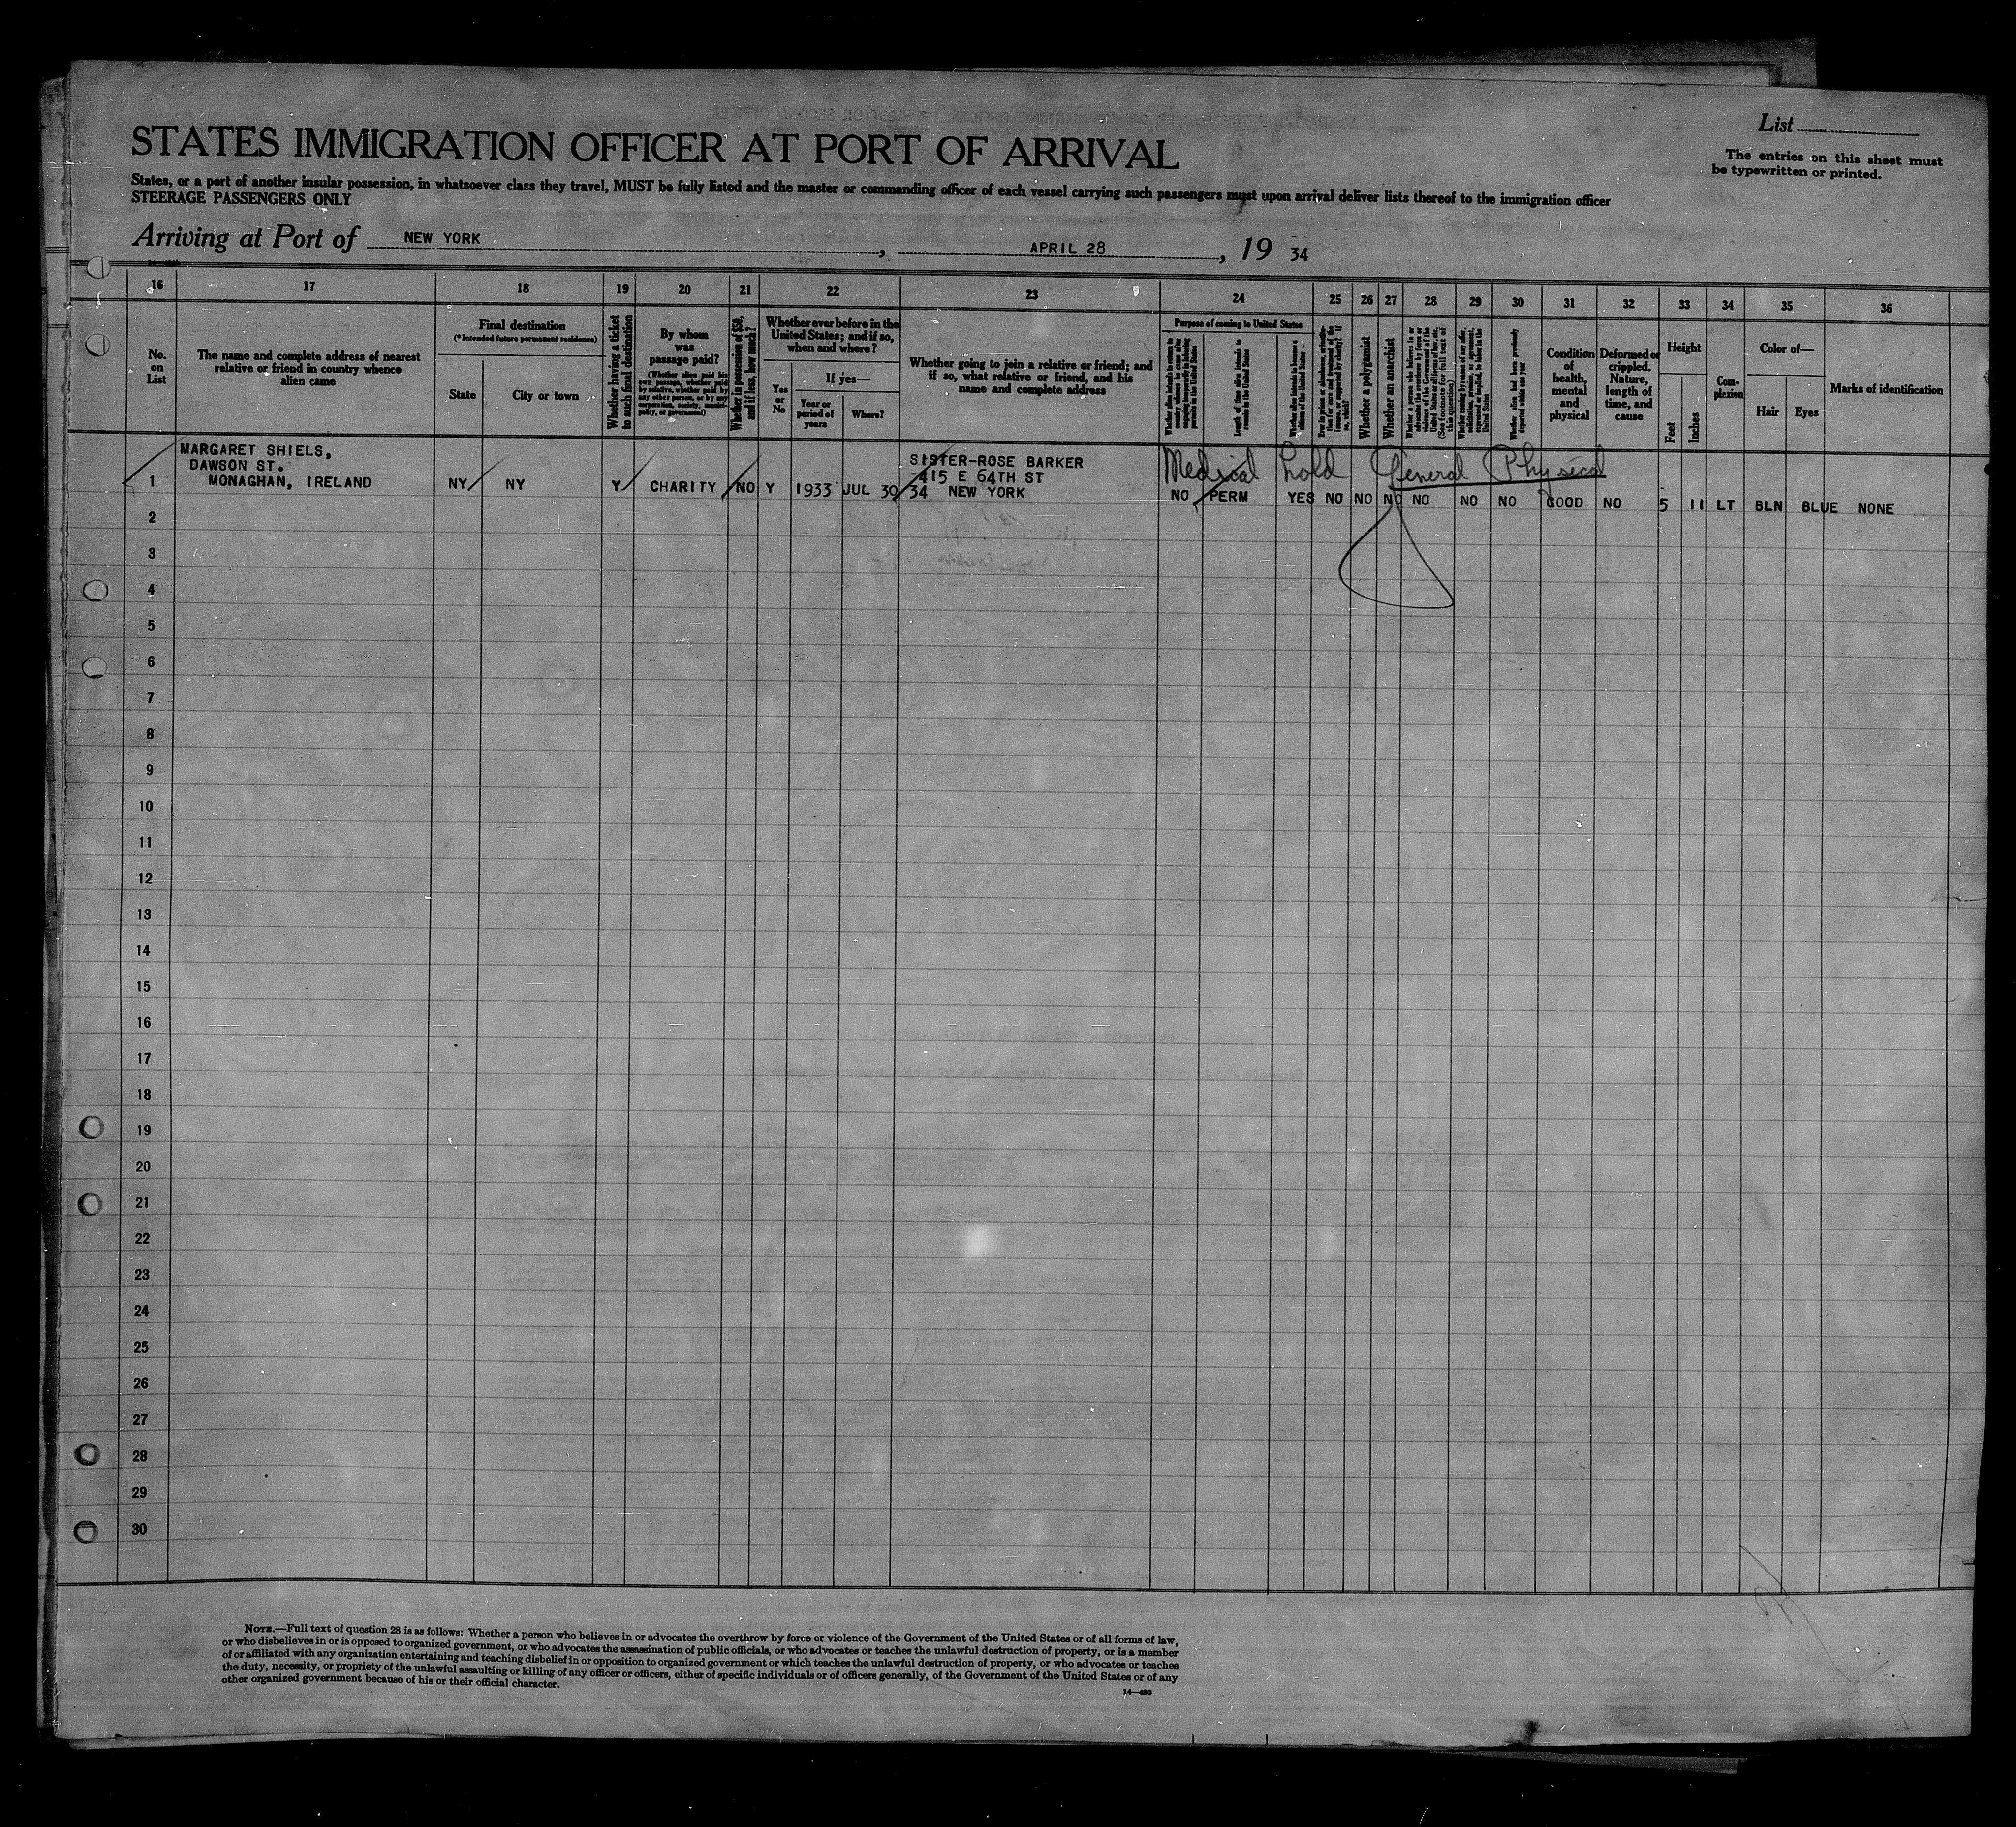 STATES IMMIGRATION OFFICER AT PORT OF ARRIVAL
List
The entries on this sheet must
be typewritten or printed.
States, or a port of another insular possession, in whatsoever class they travel, MUST be fully listed and the master or commanding officer of each vessel carrying such passengers must upon arrival deliver lists thereof to the immigration officer
STEERAGE PASSENGERS ONLY
Arriving at Port of NEW YORK, APRIL 28, 19 34
16 17 18 19 20 21 22 23 24 25 26 27 28 29 30 31 32 33 34 35 36
No.
on
List
The name and complete address of nearest
relative or friend in country whence
alien came
Final destination
(*Intended future permanent residence)
State
City or town
Whether having a ticket
to such final destination
By whom
was
passage paid?
(Whether alien paid his
own passage, whether paid
by relative, whether paid by
any other person, or by any
corporation, society, munici-
pality, or government)
Whether in possession of $50,
and if less, how much?
Whether ever before in the
United States; and if so,
when and where?
Yes
or
No
If yes—
Year or
period of
years
Where?
Whether going to join a relative or friend; and
if so, what relative or friend, and his
name and complete address
Purpose of coming to United States
Length of time alien intends to
remain in the United States
Whether alien intends to become a
citizen of the United States
Whether a polygamist
Whether an anarchist
(See footnote for full text of
this question)
Whether alien had been previously
deported within one year
Condition
of
health,
mental
and
physical
Deformed or
crippled.
Nature,
length of
time, and
cause
Height
Feet
Inches
Com-
plexion
Color of—
Hair
Eyes
Marks of identification
MARGARET SHIELS,
DAWSON ST.
MONAGHAN, IRELAND
SISTER-ROSE BARKER
415 E 64TH ST
34 NEW YORK
Medical hold General Physical
1 NY NY Y CHARITY NO Y 1933 JUL 30 NO PERM YES NO NO NO NO NO NO GOOD NO 5 11 LT BLN BLUE NONE
2
3
4
5
6
7
8
9
10
11
12
13
14
15
16
17
18
19
20
21
22
23
24
25
26
27
28
29
30
NOTE.—Full text of question 28 is as follows: Whether a person who believes in or advocates the overthrow by force or violence of the Government of the United States or of all forms of law,
or who disbelieves in or is opposed to organized government, or who advocates the assassination of public officials, or who advocates or teaches the unlawful destruction of property, or is a member
of or affiliated with any organization entertaining and teaching disbelief in or opposition to organized government or which teaches the unlawful destruction of property, or who advocates or teaches
the duty, necessity, or propriety of the unlawful assaulting or killing of any officer or officers, either of specific individuals or of officers generally, of the Government of the United States or of any
other organized government because of his or their official character.
14—480